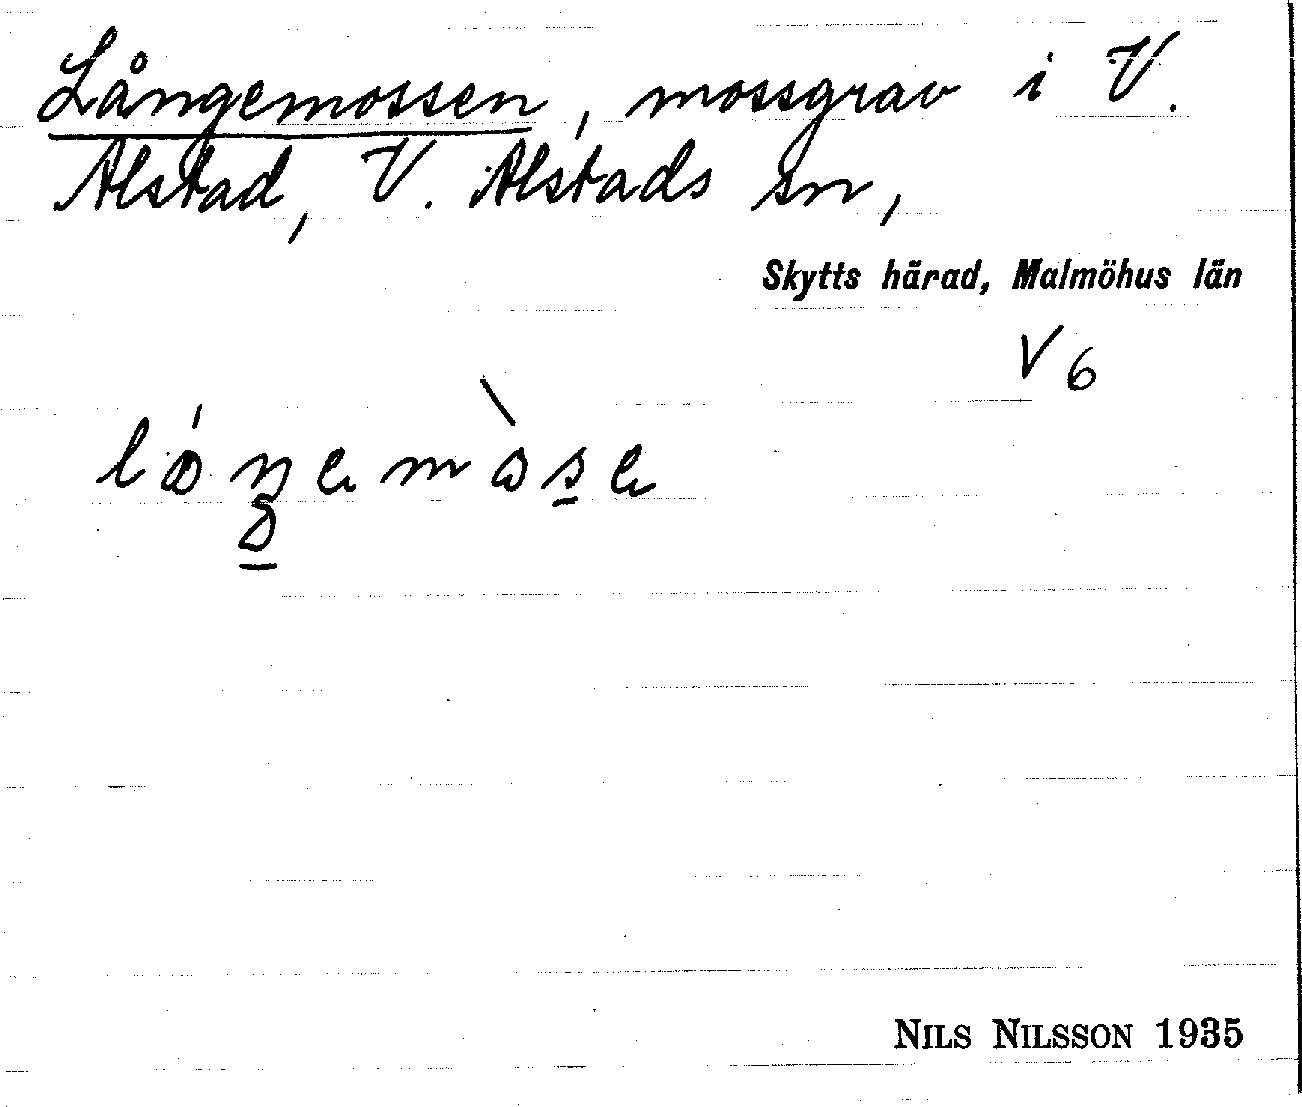 Långemossen, mossgrav i V.
Alstad, V. Alstads sn,
Skytts härad, Malmöhus län
V6
NILS NILSSON 1935